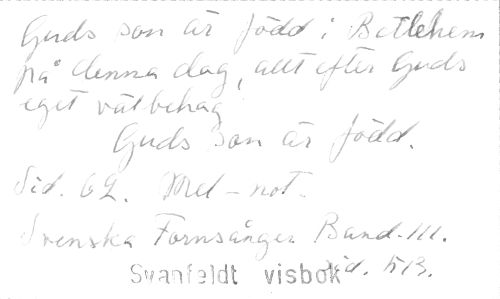 Guds son är född i Betlehem
på denna dag, allt efter Guds
eget välbehag
Guds son är född.
Sid. 62. Mel-not.
Svenska Fornsånger Band. III.
Sid. 513.
Svanfeldt visbok